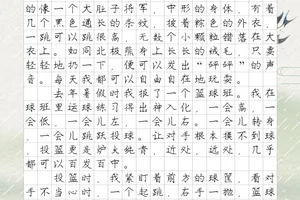 的像一个大肚子将军，中形的身体，有着
几个黑色通长的条纹，披着棕色的外衣，
一跳可以跳很高，无数个小颗粒错落在大
衣上。如同北极熊身上长长的绒毛，只要
轻轻地扔一下，便可以发出“砰砰”的声
音。每天我都可以自由自在地玩耍。
去年暑假时我报了一个篮球班。我在
球班里运球练习得出神入化，一会高，一
会低，一会儿左，一会儿右。一会儿转身
，一会儿跳跃投球。让对手根本摸不到球
投篮更是炉火纯青，近处，远处，几乎
都可以百发百中。
投篮时，我紧盯着前方的球筐，看对
手不当心时，一个起跳，右手一抛，篮球